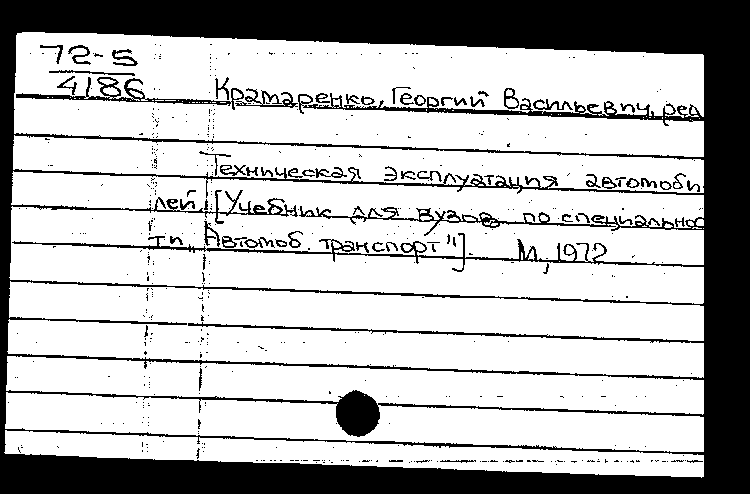 72-5
4186
Крамаренко, Георгий Васильевич, ред
Техническая эксплуатация автомоби
лей. [Учебник для вузов по специальнос
ти „Автомоб. транспорт"]. М, 1972